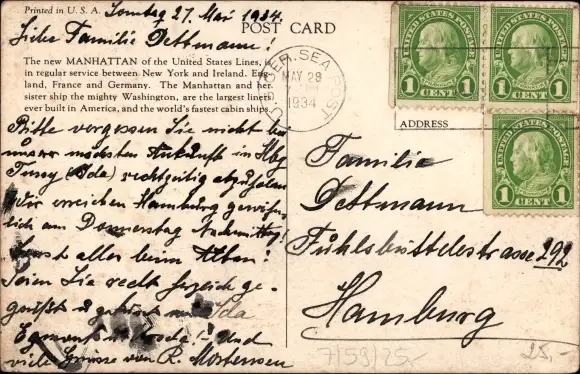 Printed in U. S. A.
Sonntag 27. Mai 1934.
Liebe Familie Dettmann!
POST CARD
The new MANHATTAN of the United States Lines, is
in regular service between New York and Ireland, Eng-
land, France and Germany. The Manhattan and her
sister ship the mighty Washington, are the largest liners
ever built in America, and the world's fastest cabin ships.
Bitte vergessen Sie nicht bei
unserer nächsten Ankunft in Hbg
(Ada) rechtzeitig abzuholen
Wir erreichen Hamburg
am Donnerstag Nachmittag!
Sonst alles beim Alten!
Seien Sie recht herzlich ge-
grüßt
Und
viele Grüsse von R. Mortensen
U.S. GER. SEA POST
MAY 28
1934
UNITED STATES POSTAGE
FRANKLIN
1 CENT 1
UNITED STATES POSTAGE
FRANKLIN
1 CENT 1
UNITED STATES POSTAGE
FRANKLIN
1 CENT 1
ADDRESS
Familie
Dettmann
Fuhlsbüttelestrasse 292
Hamburg
7/59/25,-
25,-